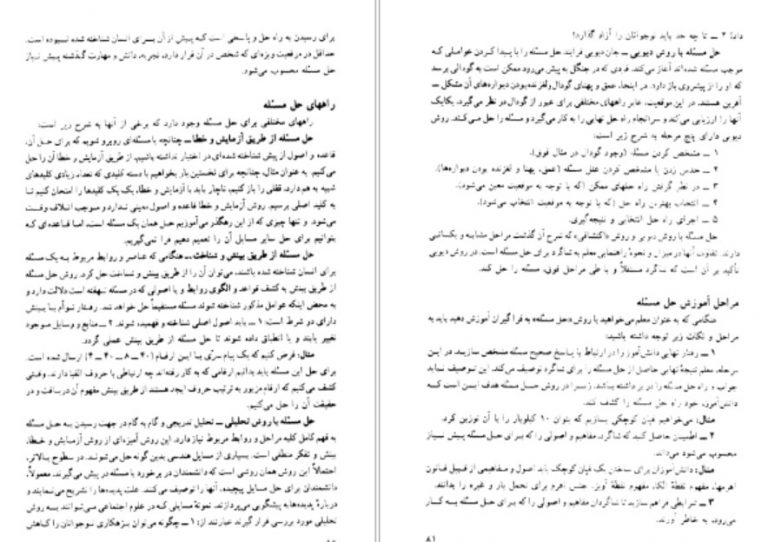 برای رسیدن به راه حل و پاسخی است که پیش از آن برای انسان شناخته شده نبوده است.
حداقل در موقعیت ویژه‌ای که شخص در آن قرار دارد، تجربه، دانش و مهارت گذشته پیش نیاز
حل مسئله محسوب می‌شود.
راههای حل مسئله
راههای مختلفی برای حل مسئله وجود دارد که برخی از آنها به شرح زیر است:
حل مسئله از طریق آزمایش و خطا ـ چنانچه با مسئله‌ای روبرو شویم که برای حل آن،
قاعده و اصول از پیش شناخته شده‌ای در اختیار نداشته باشیم، از طریق آزمایش و خطا آن را حل
می‌کنیم. به عنوان مثال، چنانچه برای نخستین بار بخواهیم با دسته کلیدی که تعداد زیادی کلیدهای
شبیه به هم دارد، قفلی را باز کنیم، ناچار باید با آزمایش و خطا، یک یک کلیدها را امتحان کنیم تا
به کلید اصلی برسیم. روش آزمایش و خطا قاعده و اصول معینی ندارد و موجب اتلاف وقت
می‌شود. و تنها چیزی که از این رهگذر می‌آموزیم حل همان یک مسئله است، اما قاعده‌ای که
بتوانیم برای حل سایر مسایل آن را تعمیم دهیم فرا نمی‌گیریم.
حل مسئله از طریق بینش و شناخت ـ هنگامی که عناصر و روابط مربوط به یک مسئله
برای انسان شناخته شده باشند، می‌توان آن را از طریق بینش و شناخت حل کرد. روش حل مسئله
از طریق بینش به کشف قواعد و الگوی روابط و یا اصولی که در مسئله نهفته است دلالت دارد و
به محض اینکه عوامل مذکور شناخته شوند مسئله مستقیماً حل خواهد شد. رفتار توأم با بینش
دارای دو شرط است: ۱ ـ باید اصول اصلی شناخته و فهمیده شوند. ۲ ـ منابع و وسایل موجود
تغییر یابند و با انطباق داده شوند تا حل مسئله از طریق بینش عملی گردد.
مثال: فرض کنیم که یک پیام سری با این ارقام (۲۰ ـ ۸ ـ ۴۰ ـ ۴) ارسال شده است.
برای حل این مسئله باید بدانیم ارقامی که به کار رفته‌اند چه ارتباطی با حروف الفبا دارند. وقتی
کشف می‌کنیم که ارقام مزبور به ترتیب حروف ابجد هستند از طریق بینش مفهوم آن دریافت و در
حقیقت آن را حل می‌کنیم.
حل مسئله با روش تحلیلی ـ تحلیل تدریجی و گام به گام در جهت رسیدن به حل مسئله
به فهم کامل کلیه مراحل و روابط مربوط نیاز دارد. این روش آمیزه‌ای از روش آزمایش و خطا،
بینش و تفکر منطقی است. بسیاری از مسایل هندسی بدین گونه حل می‌شوند. در سطوح بالاتر،
احتمالاً این روش همان روشی است که دانشمندان در برخورد با مسئله در پیش می‌گیرند. معمولاً،
دانشمندان برای حل مسایل پیچیده، آنها را توصیف می‌کنند. علت پدیده‌ها را تشریح می‌نمایند و
دربارهٔ پدیده‌ها به پیشگویی می‌پردازند. نمونهٔ مسایلی که در علوم اجتماعی می‌توانند با روش
تحلیلی مورد بررسی قرار گیرند عبارتند از: ۱ ـ چگونه می‌توان بزهکاری نوجوانان را کاهش
داد؟ ۲ ـ تا چه حد باید نوجوانان را آزاد گذارد؟
حل مسئله با روش دیویی ـ جان دیویی فرایند حل مسئله را با پیدا کردن عواملی که
موجب مسئله شده‌اند آغاز می‌کند. فردی که در جنگل به پیش می‌رود ممکن است به گودالی برسد
که او را از پیشروی باز دارد. در اینجا، عمق و پهنای گودال و لغزنده بودن دیواره‌های آن مشکل ـ
آفرین هستند. در این موقعیت، عابر راههای مختلفی برای عبور از گودال در نظر می‌گیرد، یکایک
آنها را ارزیابی می‌کند و سرانجام راه حل نهایی را به کار می‌گیرد و مسئله را حل می‌کند. روش
دیویی دارای پنج مرحله به شرح زیر است:
۱ ـ مشخص کردن مسئله. (وجود گودال در مثال فوق).
۲ ـ حدس زدن یا مشخص کردن علل مسئله (عمق، پهنا و لغزنده بودن دیواره‌ها).
۳ ـ در نظر گرفتن راه حلهای ممکن (که با توجه به موقعیت معین می‌شود).
۴ ـ انتخاب بهترین راه حل (که با توجه به موقعیت انتخاب می‌شود).
۵ ـ اجرای راه حل انتخابی و نتیجه‌گیری.
حل مسئله با روش دیویی و روش «اکتشافی» که شرح آن گذشت مراحل مشابه و یکسانی
دارند. تفاوت آنها در میزان و نحوهٔ راهنمایی معلم به شاگرد برای حل مسئله است. در روش دیویی
تأکید بر آن است که شاگرد مستقلاً و با طی مراحل فوق، مسئله را حل کند.
مراحل آموزش حل مسئله
هنگامی که به عنوان معلم می‌خواهید با روش «حل مسئله» به فراگیران آموزش دهید باید به
مراحل و نکات زیر توجه داشته باشید:
۱ ـ رفتار نهایی دانش‌آموز را در ارتباط با پاسخ صحیح مسئله مشخص سازید. در این
مرحله، معلم نتیجهٔ نهایی حاصل از حل مسئله را برای شاگرد توصیف می‌کند. این توصیف نباید
جواب و راه حل مسئله را در بر داشته باشد. زیرا در روش حل مسئله هدف این است که
دانش‌آموز، خود راه حل مسئله را کشف کند.
مثال: می‌خواهیم قپان کوچکی بسازیم که بتوان ۱۰ کیلوبار را با آن توزین کرد.
۲ ـ اطمینان حاصل کنید که شاگرد، مفاهیم و اصولی را که برای حل مسئله پیش نیاز
محسوب می‌شود می‌داند.
مثال: دانش‌آموزان برای ساختن یک قپان کوچک باید اصول و مفاهیمی از قبیل قانون
اهرمها، مفهوم نقطهٔ اتکا، مفهوم نقطهٔ آویز، جنس اهرم برای تحمل بار و غیره را بدانند.
۳ ـ شرایطی فراهم سازید تا شاگردان مفاهیم و اصولی را که برای حل مسئله به کار
می‌رود، به خاطر آورند.
۸۱